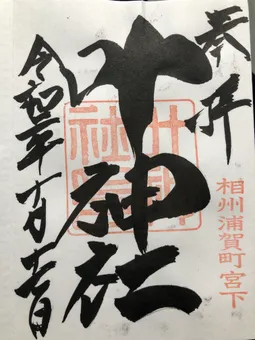 奉拝
叶神社
叶神
社印
相州浦賀町宮下
令和 年 月 日